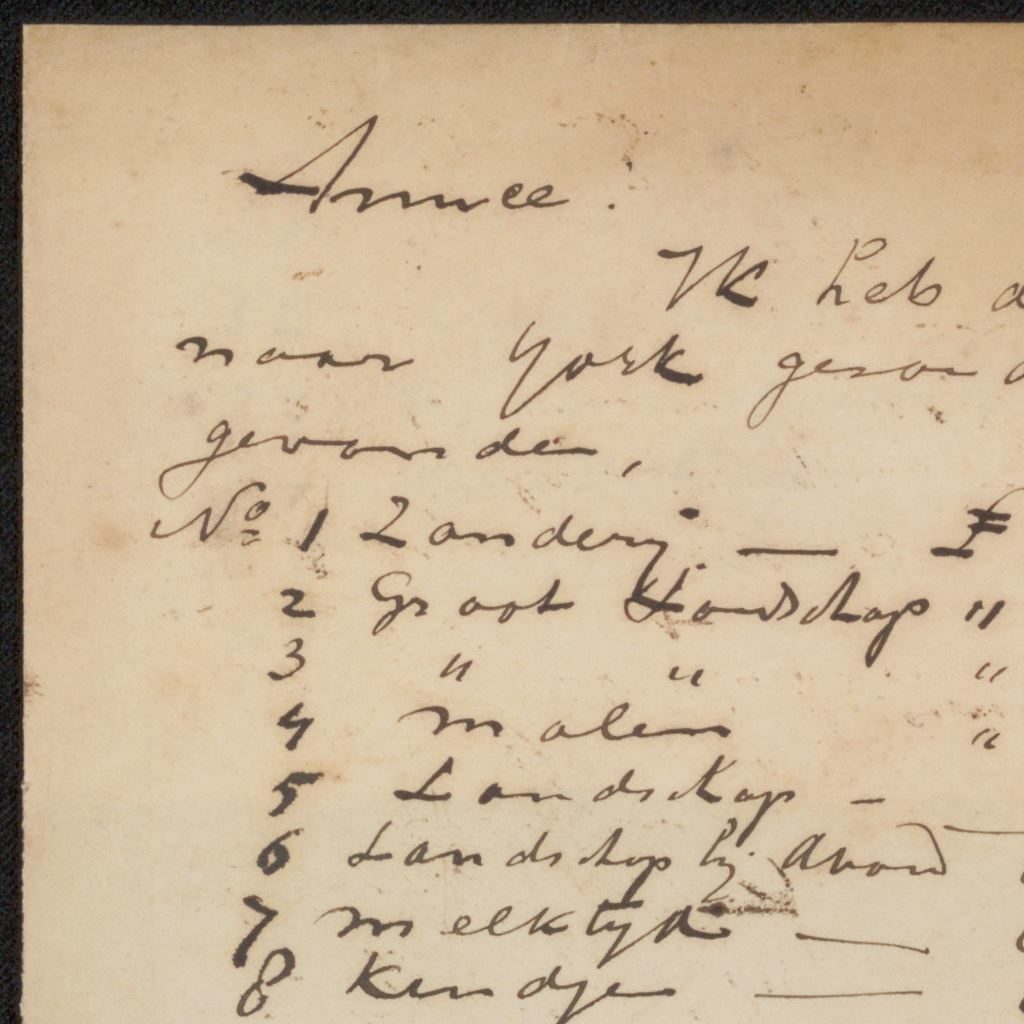 Amice.
Ik heb d
naar York geson d
gevonden,
No 1 Zandery — £
2 Groot Landschap "
3 " " "
4 molen "
5 Landschap -
6 Landschap by Avond
7 melktyd —
8 Kindje —